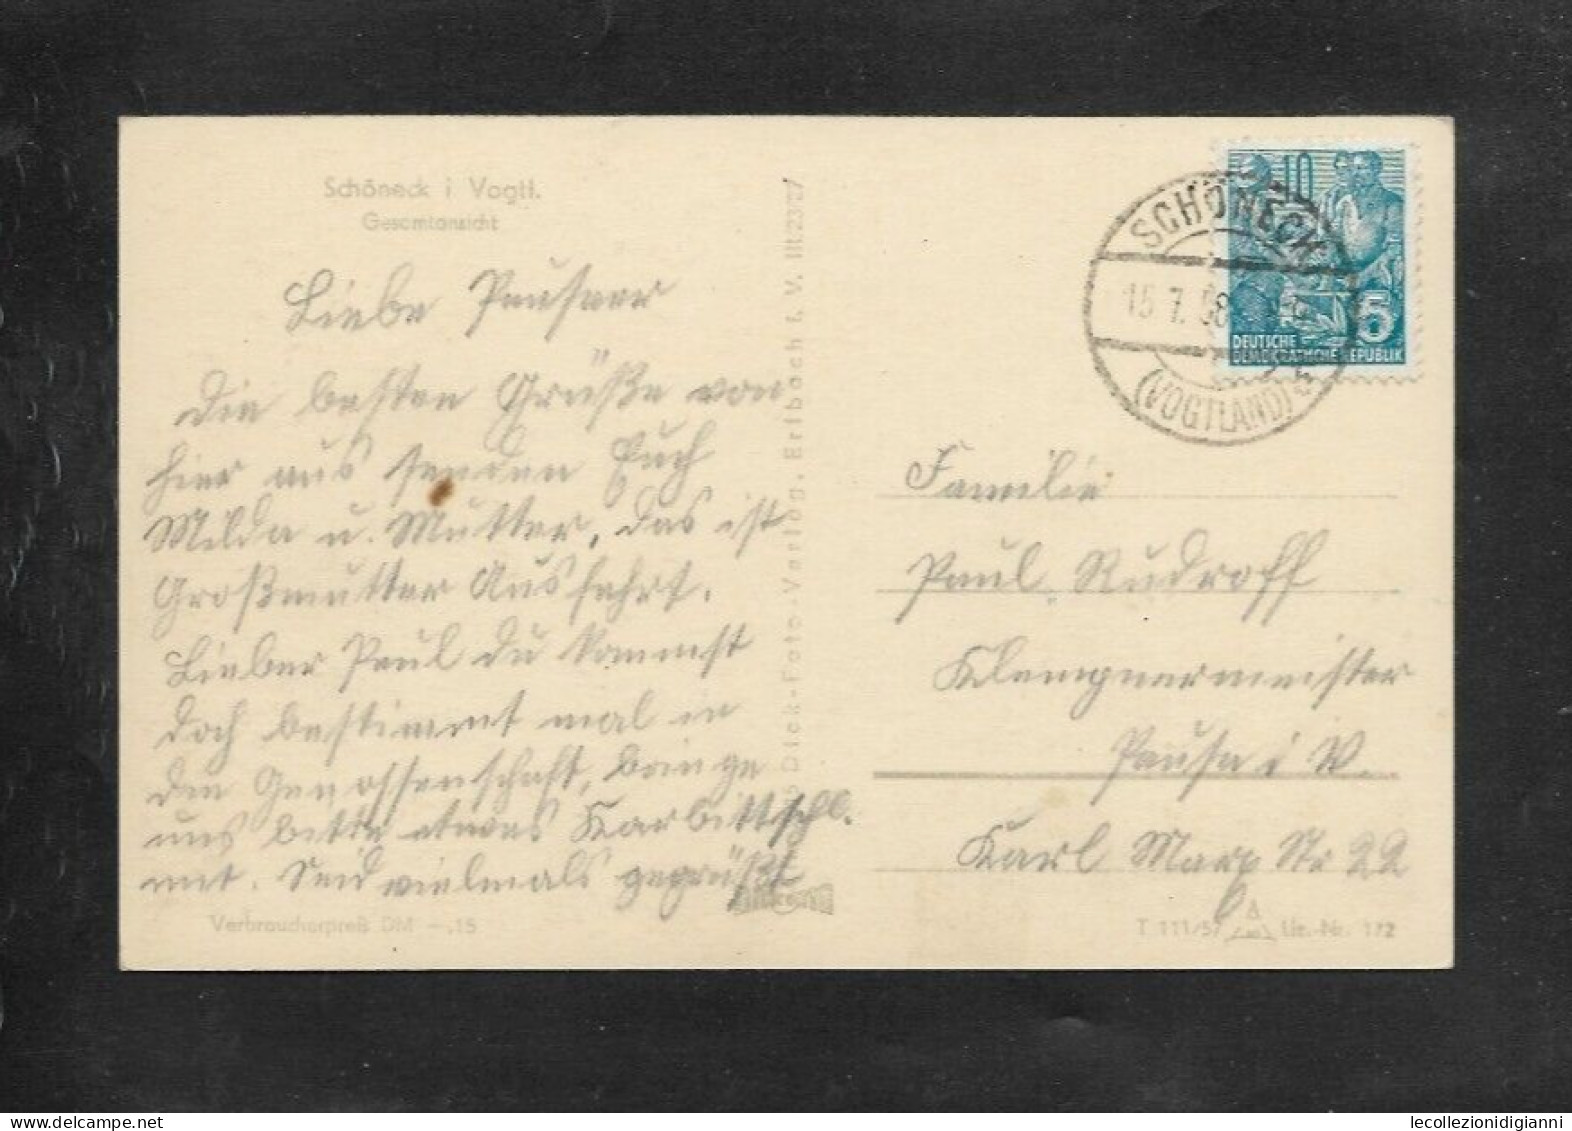 Schöneck i Vogtl.
Gesamtansicht
Liebe Pausaer
die besten Grüße von
hier aus senden Euch
Milda u. Mutter, das ist
Großmutter Ausfahrt.
Lieber Paul du kommst
doch bestimmt mal in
die Genossenschaft, bringe
uns bitte etwas Karbittschl.
mit. Seid vielmals gegrüßt
Verbraucherpreis DM -,15
Dick-Foto-Verlag, Erlbach i. V. III 23
SCHÖNECK
15.7.58
(VOGTLAND)
10
5
DEUTSCHE
DEMOKRATISCHE REPUBLIK
Familie
Paul Rudroff
Klempnermeister
Pausa i V.
Karl Marx Str 22
T 111/57 Liz.-Nr. 172
lecollezionidigianni